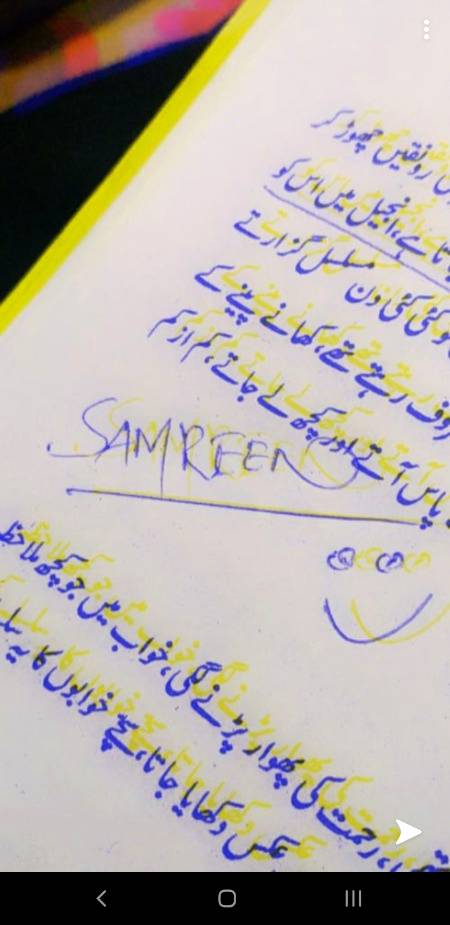 رونقیں چھوڑ کر
تا ہے، انجیل میں اس کو
کئی کئی دن مسلسل گزارتے
رہتے تھے، کھانے پینے کے
پاس آتے اور کچھ لے جاتے، کم از کم
SAMREEN
رحمت کی پھوار پڑنے لگی، خواب میں جو کچھ ملاحظ
عکس دکھایا جاتا، سچے خوابوں کا یہ سلسلہ